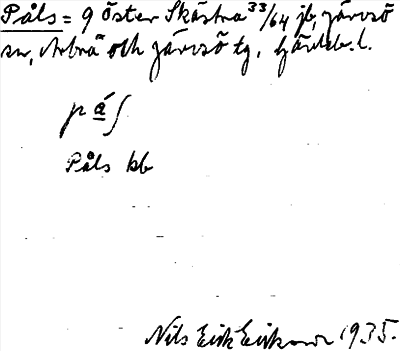 Påls = 9 Öster Skästra 33/64 jb, Järvsö
sn, Arbrå och Järvsö tg, Gävleb. l.
på∫
Påls kb
Nils Erik Eriksson 1935.